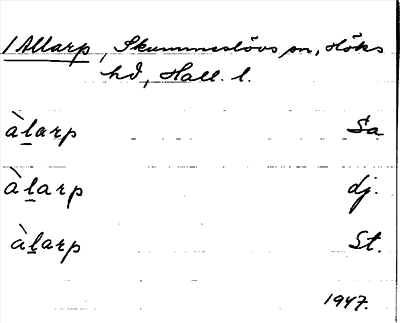 1 Allarp, Skummeslövs sn, Höks
hd, Hall. l.
àl̲arp Sa
àl̲arp dj.
àl̲arp St.
1947.